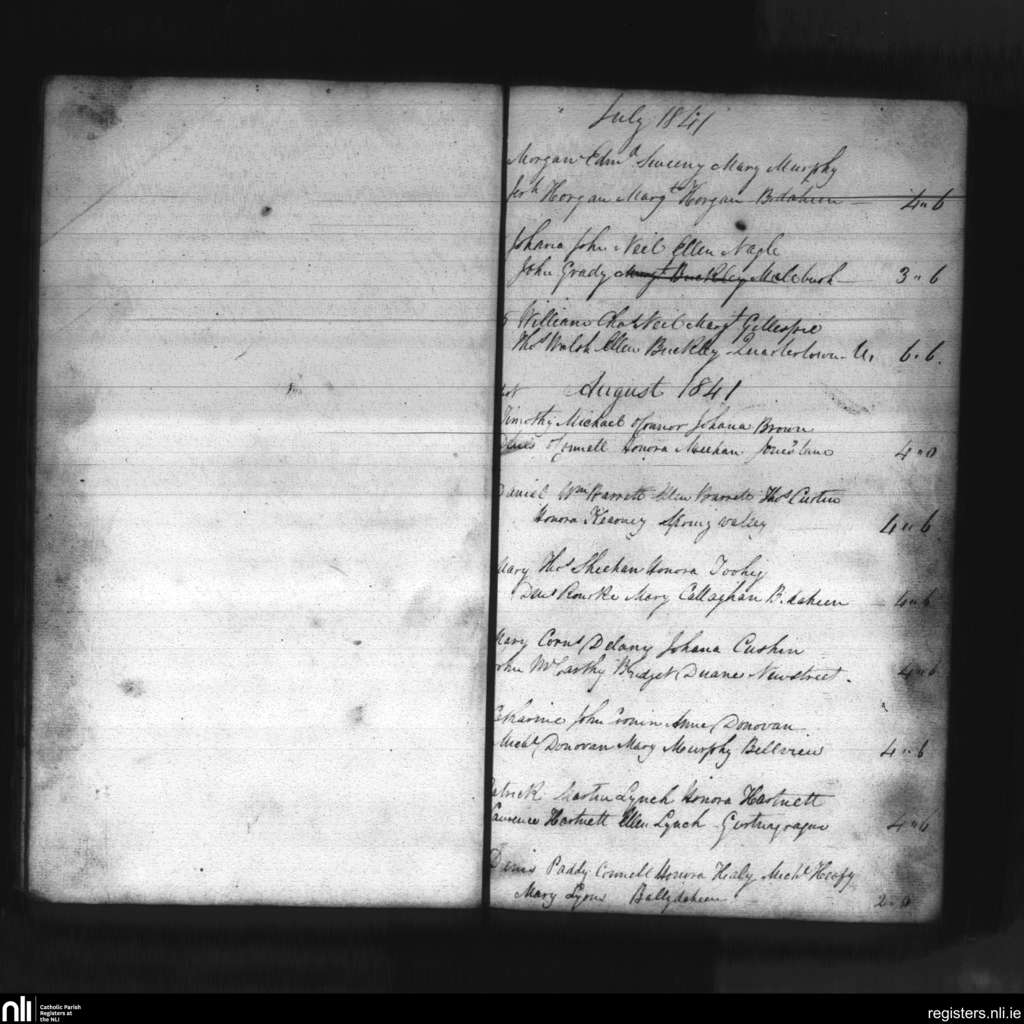 July 1841
Morgan Edmd Sweeny Mary Murphy
Jerh Horgan Margt Horgan B.daheen 4 " 6
Johana John Neil Ellen Nagle
John Grady Margt Buckley 3 " 6
William Chas Neil Margt Gillespie
Thos Walsh Ellen Buckley Quartertown 6 " 6
August 1841
Timothy Michael OConnor Johana Brown
Honora Meehan Jones lane 4 " 0
Daniel Wm Barrett Ellen Barrett Thos Curtin
Honora Kearney Spring valley 4 " 6
Mary Thos Sheehan Honora Toohey
Denis Rourke Mary Callaghan B.daheen 4 " 6
Mary Corns Delany Johana Cushin
John McCarthy Bridget Duane Newstreet 4 " 6
Catharine John Cronin Anne Donovan
Michl Donovan Mary Murphy Bellview 4 " 6
Patrick Martin Lynch Honora Hartnett
Laurence Hartnett Ellen Lynch 4 " 6
Denis Paddy Connell Honora Healy Michl Heafy
Mary Lyons Ballydaheen
nli
Catholic Parish
Registers at
the NLI
registers.nli.ie